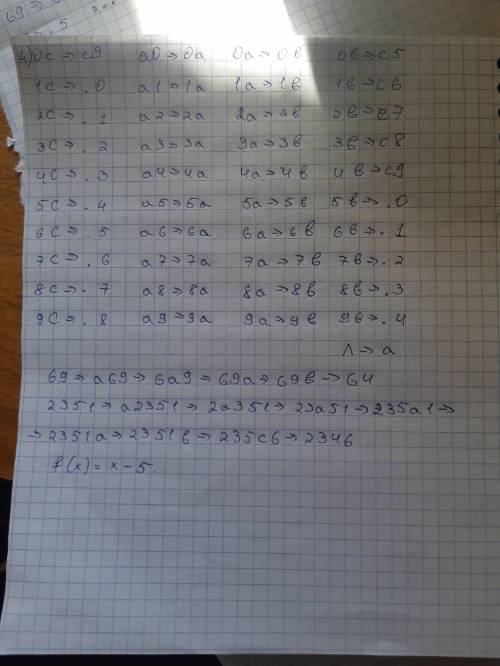 69 →
. 5
4) 0c → c9 a0 → 0a 0a → 0в 0в → c5
1c → . 0 a1 → 1a 1a → 1в 1в → c6
2c → . 1 a2 → 2a 2a → 2в 2в → c7
3c → . 2 a3 → 3a 3a → 3в 3в → c8
4c → . 3 a4 → 4a 4a → 4в 4в → c9
5c → . 4 a5 → 5a 5a → 5в 5в → .0
6c → . 5 a6 → 6a 6a → 6в 6в → . 1
7c → . 6 a7 → 7a 7a → 7в 7в → . 2
8c → . 7 a8 → 8a 8a → 8в 8в → . 3
9c → . 8 a9 → 9a 9a → 9в 9в → . 4
Λ → a
69 → a69 → 6a9 → 69a → 69в → 64
2351 → a2351 → 2a351 → 23a51 → 235a1 →
→ 2351a → 2351в → 235c6 → 2346
f(x) = x – 5.